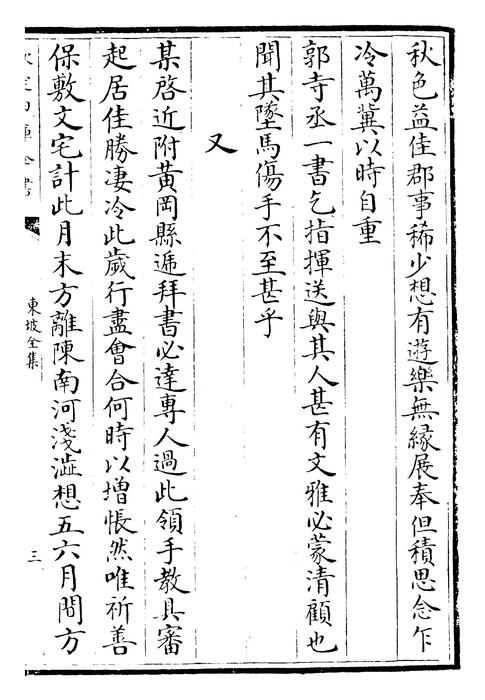 秋色益佳郡事稀少想有遊樂無緣展奉但積思念乍
冷萬冀以時自重
郭寺丞一書乞指揮送與其人甚有文雅必蒙清顧也
聞其墜馬傷手不至甚乎
又
某啓近附黃岡縣遞拜書必達專人過此領手教具審
起居佳勝凄冷此歲行盡會合何時以增悵然唯祈善
保敷文宅計此月末方離陳南河淺澁想五六月間方
東坡全集
三